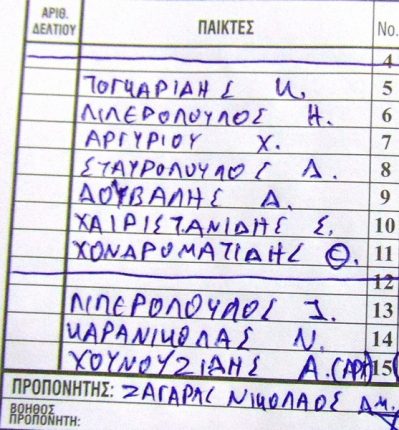 ΑΡΙΘ. ΔΕΛΤΙΟΥ ΠΑΙΚΤΕΣ No.
4
ΤΟΓΚΑΡΙΔΗΣ Κ. 5
ΛΙΠΕΡΟΠΟΥΛΟΣ Η. 6
ΑΡΓΥΡΙΟΥ Χ. 7
ΣΤΑΥΡΟΠΟΥΛΟΣ Δ. 8
ΔΟΥΒΑΛΗΣ Δ. 9
ΧΑΙΡΙΣΤΑΝΙΔΗΣ Σ. 10
ΧΟΝΔΡΟΜΑΤΙΔΗΣ Θ. 11
12
ΛΙΠΕΡΟΠΟΥΛΟΣ Ι. 13
ΚΑΡΑΝΙΚΟΛΑΣ Ν. 14
ΧΟΥΝΟΥΖΙΔΗΣ Α. (ΑΡΧ) 15
ΠΡΟΠΟΝΗΤΗΣ: ΖΑΓΑΡΑΣ ΝΙΚΟΛΑΟΣ
ΒΟΗΘΟΣ
ΠΡΟΠΟΝΗΤΗ: